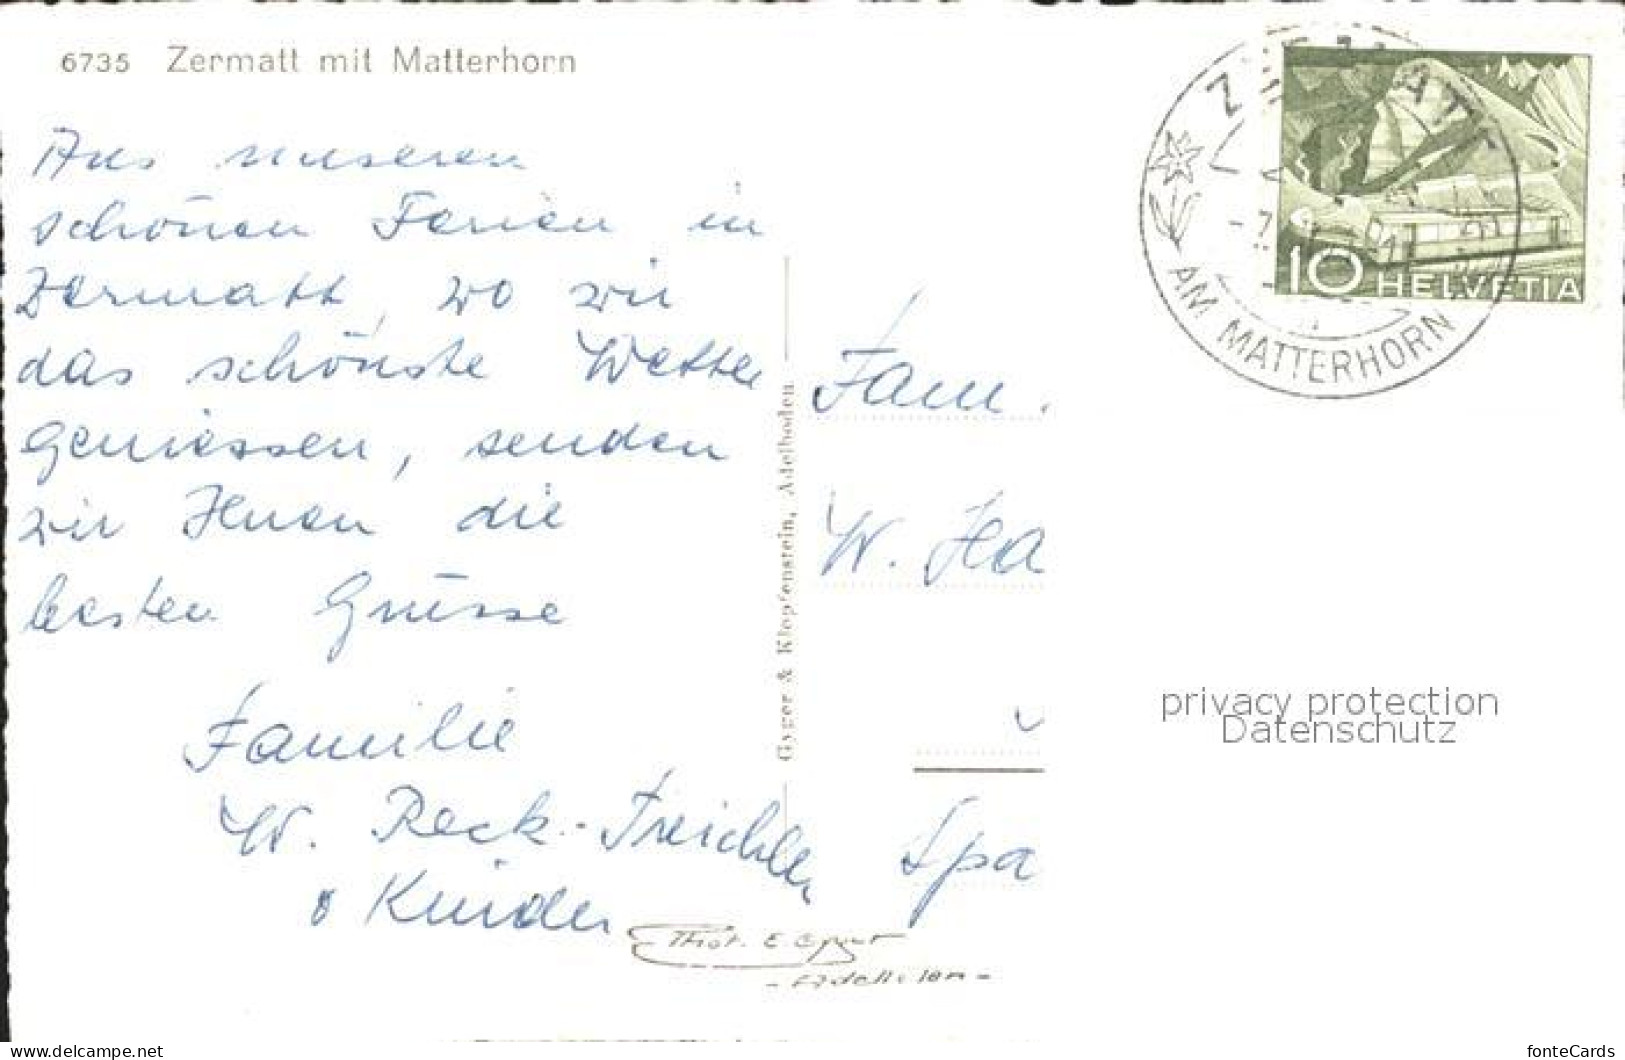 6735 Zermatt mit Matterhorn
Aus unseren
schönen Ferien in
Zermatt, wo wir
das schönste Wetter
geniessen, senden
wir Ihnen die
besten Grüsse
Familie
W. Reck-Treichler
& Kinder
Gyger & Klopfenstein, Adelboden
Phot. E. Gyger
- Adelboden -
ZERMATT
AM MATTERHORN
10 HELVETIA
Fam.
W. Ha
Spa
privacy protection
Datenschutz
www.delcampe.net
fonteCards